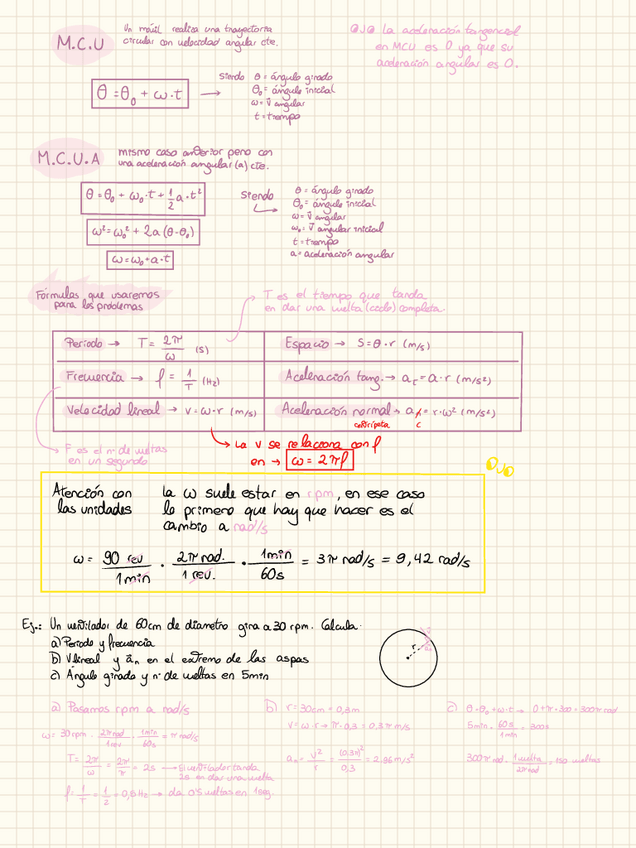 M.C.U
Un móvil realiza una trayectoria
circular con velocidad angular cte.
OJO La aceleración tangencial
en MCU es 0 ya que su
aceleración angular es 0.
θ = θ₀ + ω·t
Siendo θ = ángulo girado
θ₀ = ángulo inicial
ω = v̄ angular
t = tiempo
M.C.U.A
mismo caso anterior pero con
una aceleración angular (a) cte.
θ = θ₀ + ω₀·t + 1/2 a·t²
ω² = ω₀² + 2a (θ-θ₀)
ω = ω₀ + a·t
Siendo
θ = ángulo girado
θ₀ = ángulo inicial
ω = v̄ angular
ω₀ = v̄ angular inicial
t = tiempo
a = aceleración angular
Fórmulas que usaremos
para los problemas
T es el tiempo que tarda
en dar una vuelta (ciclo) completa.
Periodo → T = 2π/ω (s)
Espacio → S = θ·r (m/s)
Frecuencia → f = 1/T (Hz)
Aceleración tang. → a = a·r (m/s²)
Velocidad lineal → v = ω·r (m/s)
Aceleración normal → a = r·ω² (m/s²)
centrípeta c
F es el nº de vueltas
en un segundo
La v se relaciona con f
en → ω = 2πf
OJO
Atención con
las unidades
la ω suele estar en rpm, en ese caso
lo primero que hay que hacer es el
cambio a rad/s
ω = 90 rev/1 min · 2π rad./1 rev. · 1min/60s = 3π rad/s = 9,42 rad/s
Ej.: Un ventilador de 60cm de diametro gira a 30 rpm. Calcula:
a) Periodo y frecuencia
b) Vlineal y a⃗n en el extremo de las aspas
c) Ángulo girado y nº de vueltas en 5min
r
a) Pasamos rpm a rad/s
ω = 30rpm · 2π rad/1 rev · 1min/60s = π rad/s
T = 2π/ω = 2π/π = 2s → El ventilador tarda
2s en dar una vuelta
f = 1/T = 1/2 = 0,5 Hz → da 0'5 vueltas en 1 seg.
b) r = 30cm = 0,3m
v = ω·r → π·0,3 = 0,3π m/s
aₙ = v²/r = (0,3π)²/0,3 = 2.96 m/s²
c) θ = θ₀ + ω·t → 0 + π·300 = 300π rad
5min · 60s/1min = 300s
300π rad · 1 vuelta/2π rad = 150 vueltas